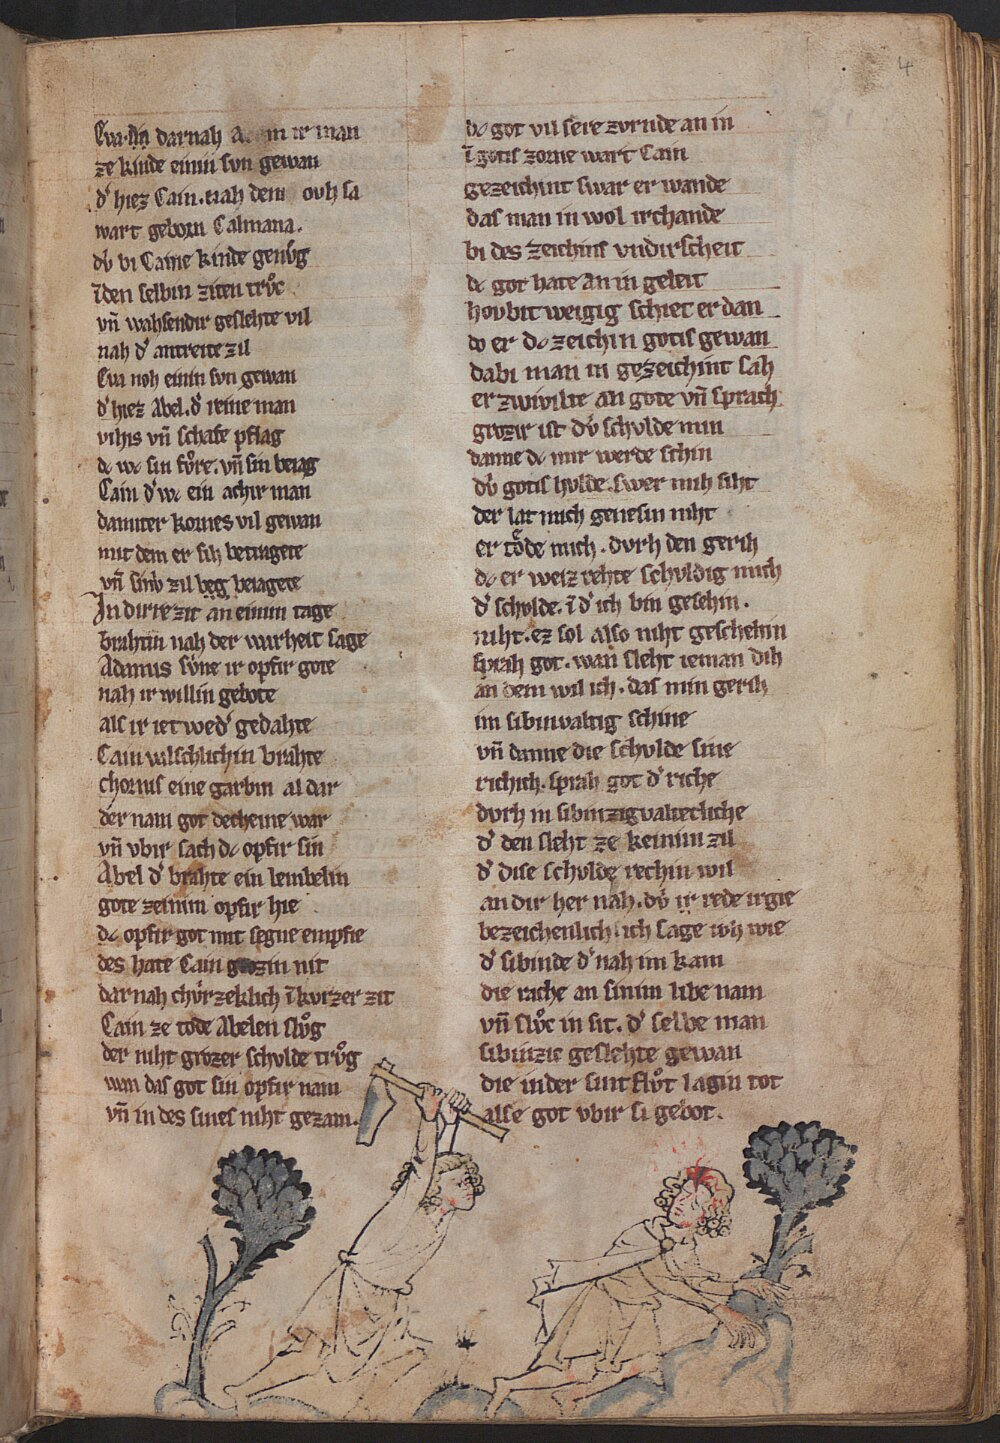 4
Eva. Un darnah A m ir man
ze kinde einin svn gewan
d' hiez Cain. nah dem ovh sa
wart geborn Calmana.
dv̓ bi Caine kinde genv̊g
ı̄ den selbin ziten trv̊c
vn̄ wahsendir geslehte vil
nah d' antreite zil
Eva noh einin svn gewan
d' hiez Abel. d' reine man
vihis vn̄ schafe pflag
dc wc sin fv̊re. vn̄ sin beiag
Cain d' wc ein achir man
damiter kornes vil gewan
mit dem er sih betragete
vn̄ sinv̓ zil beiagete
In dirre zit an einim tage
brahtin nah der warheit sage
Adamis sv̓ne ir opfir gote
nah ir willin gebote
als ir ietwed' gedahte
Cain valschlichin brahte
chornis eine garbin al dar
der nam got decheine war
vn̄ vbir sach dc opfir sin
Abel d' brahte ein lembelin
gote zeinim opfir hie
dc opfir got mit segne empfie
des hate Cain grozin nit
dar nah chv̓rzeklich ı̄ kvrzer zit
Cain ze tode Abelen slv̊g
der niht grozer schvlde trv̊g
wan das got sin opfir nam
vn̄ in des sines niht gezam.
dc got vil sere zvrnde an in
ı̄ gotis zorne wart Cain
gezeichint swar er wande
das man in wol irchande
bi des zeichins vndirscheit
dc got hate an in geleit
hovbit weigig schiet er dan
do er dc zeichin gotis gewan
dabi man in gezeichint sah
er zwivilte an gote vn̄ sprach
grozir ist dv̓ schvlde min
danne dc mir werde schin
dv̓ gotis hvlde. swer mih siht
der lat mich genesin niht
er tŏde mich. dvrh den gerih
dc er weiz rehte schvldig mich
d' schvlde. ı̄ d' ich bin gesehin.
niht. ez sol also niht geschehin
sprah got. wan sleht ieman dih
an dem wil ich. das min gerih
im sibinvaltig schine
vn̄ danne die schvlde sine
richich. sprah got d' riche
dvrh in sibinzigvaltecliche
d' den sleht ze keinim zil
d' dise schvlde rechin wil
an dir her nah. dv̓ ir rede irgie
bezeichenlich ich sage wie
d' sibinde d' nah im kam
die rache an sinim libe nam
vn̄ slv̊c in sit. d' selbe man
sibinzic geslehte gewan
die inder sintflv̊t lagin tot
alse got vbir si gebot.